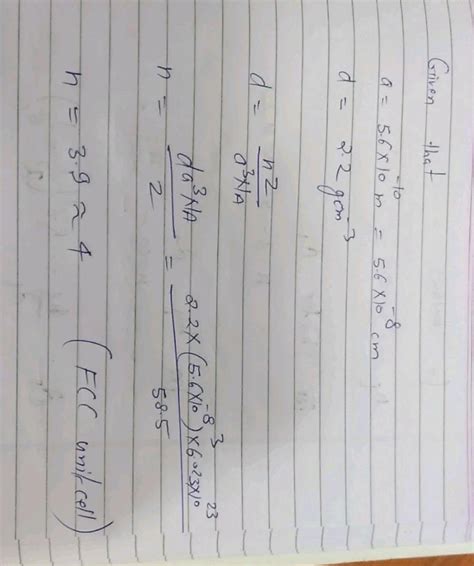 Given that
a = 5.6×10⁻¹⁰ m = 5.6×10⁻⁸ cm
d = 2.2 gcm⁻³
d = nz / a³NA
n = da³NA / z = 2.2×(5.6×10⁻⁸)³×6.023×10²³ / 58.5
n = 3.9 ≈ 4 (FCC unit cell)